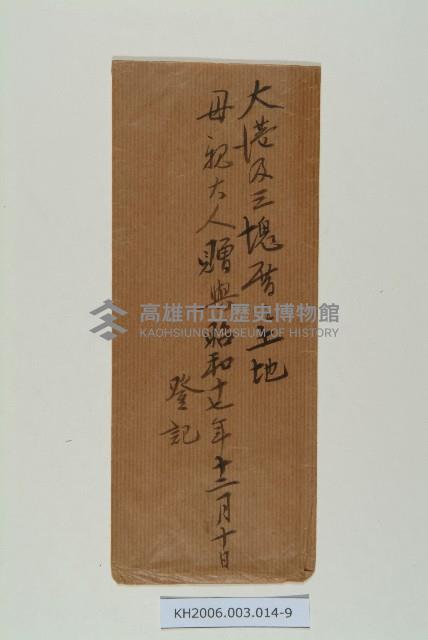 大港及三塊厝土地
母親大人贈與昭和十七年十二月十日
登記
高雄市立歷史博物館
KAOHSIUNG MUSEUM OF HISTORY
KH2006.003.014-9